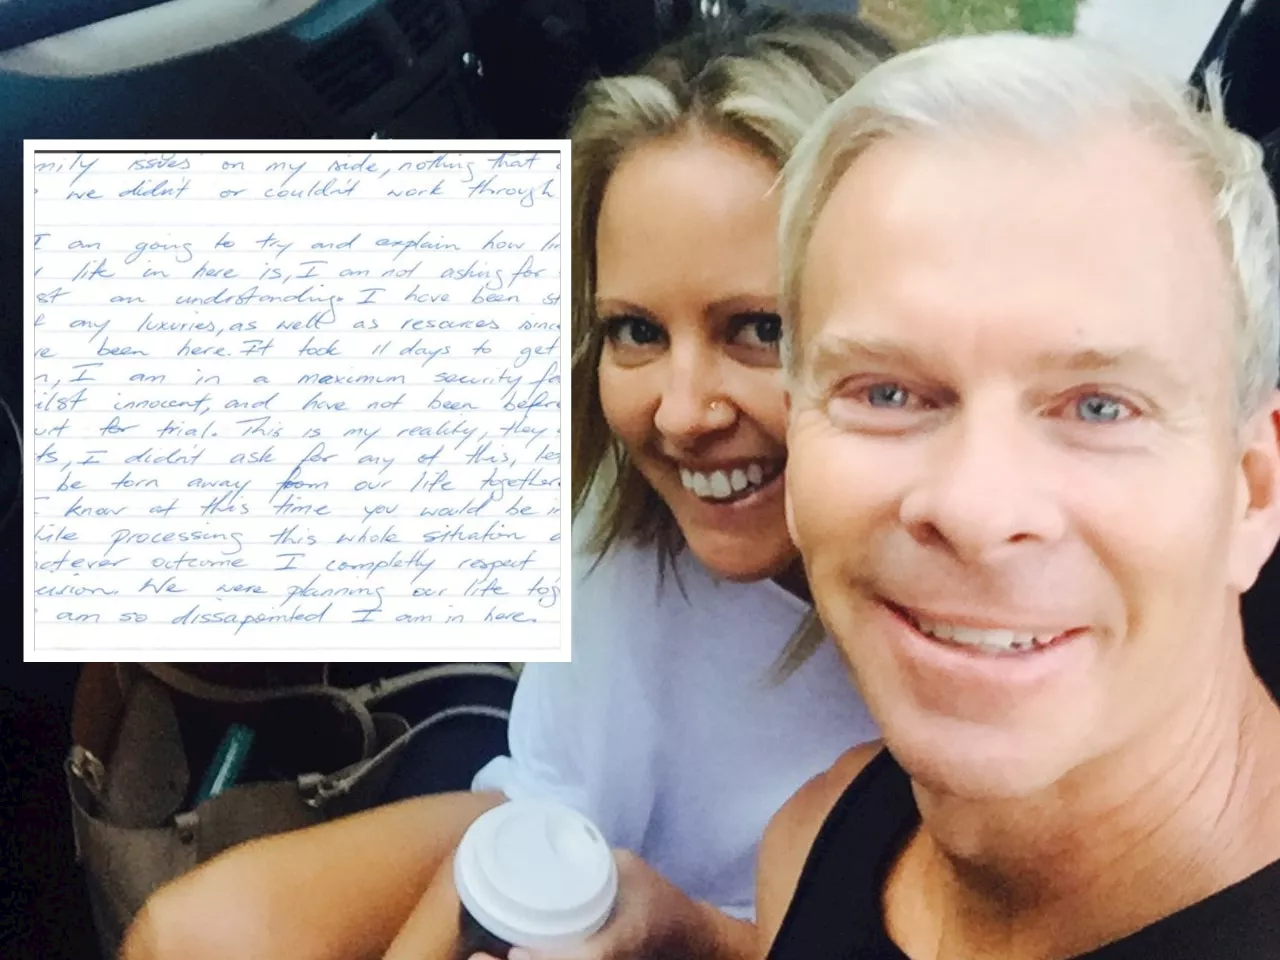 mily issues on my side, nothing that
we didn't or couldn't work through
I am going to try and explain how
life in here is, I am not asking for
st an understanding. I have been st
any luxuries, as well as resources since
e been here. It took 11 days to get
n, I am in a maximum security fa
ilst innocent, and have not been before
urt for trial. This is my reality, they
ts, I didn't ask for any of this, le
be torn away from our life together
I know at this time you would be i
hile processing this whole sitration
atever outcome I completly respect
cision. We were planning our life tog
am so dissapointed I am in here.